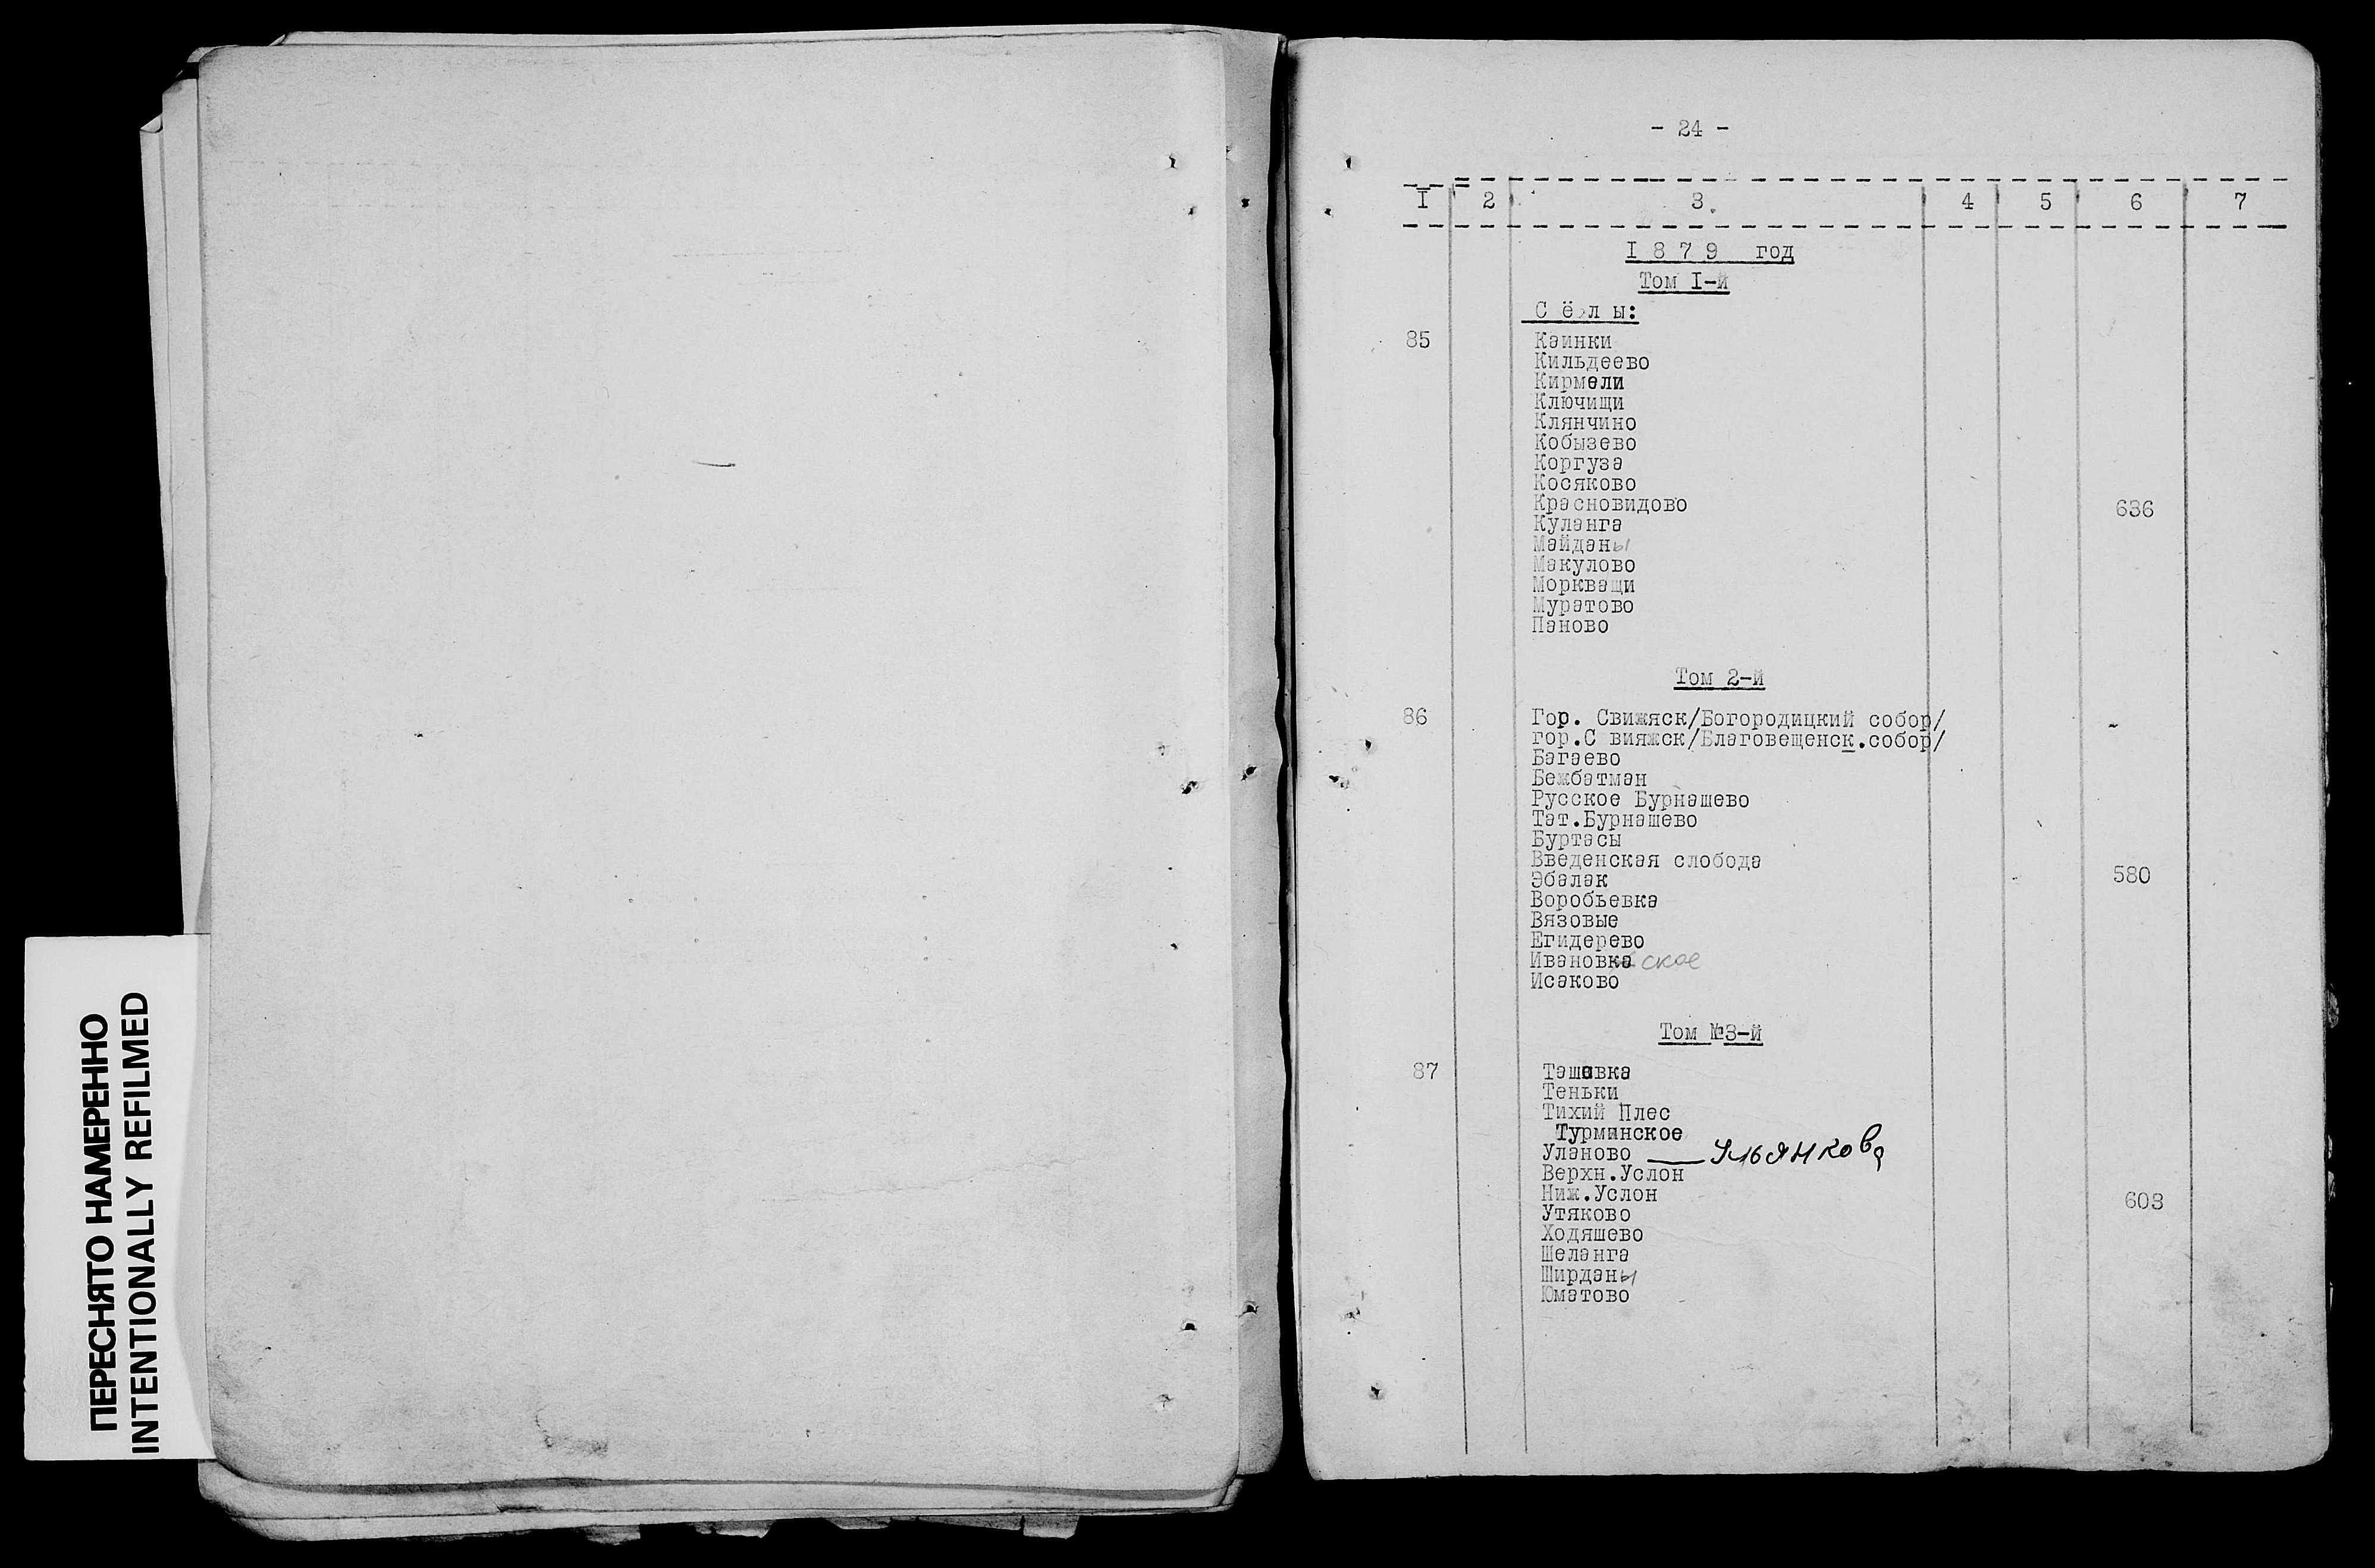 ПЕРЕСНЯТО НАМЕРЕННО
INTENTIONALLY REFILMED
- 24 -
I 2 3. 4 5 6 7
I 8 7 9 год
Том I-й
С ё л ы:
85 Каинки
Кильдеево
Кирмели
Ключищи
Клянчино
Кобызево
Коргуза
Косяково
Красновидово 636
Куланга
Майданы
Макулово
Моркваши
Муратово
Паново
Том 2-й
86 Гор. Свижяск/Богородицкий собор/
гор.С вияжск/Благовещенск.собор/
Багаево
Бежбатман
Русское Бурнашево
Тат.Бурнашево
Буртасы
Введенская слобода
Эбалак 580
Воробьевка
Вязовые
Егидерево
Ивановка ское
Исаково
Том №3-й
87 Ташевка
Теньки
Тихий Плес
Турминское
Уланово — Ульянково
Верхн.Услон
Ниж.Услон 603
Утяково
Ходяшево
Шеланга
Ширданы
Юматово